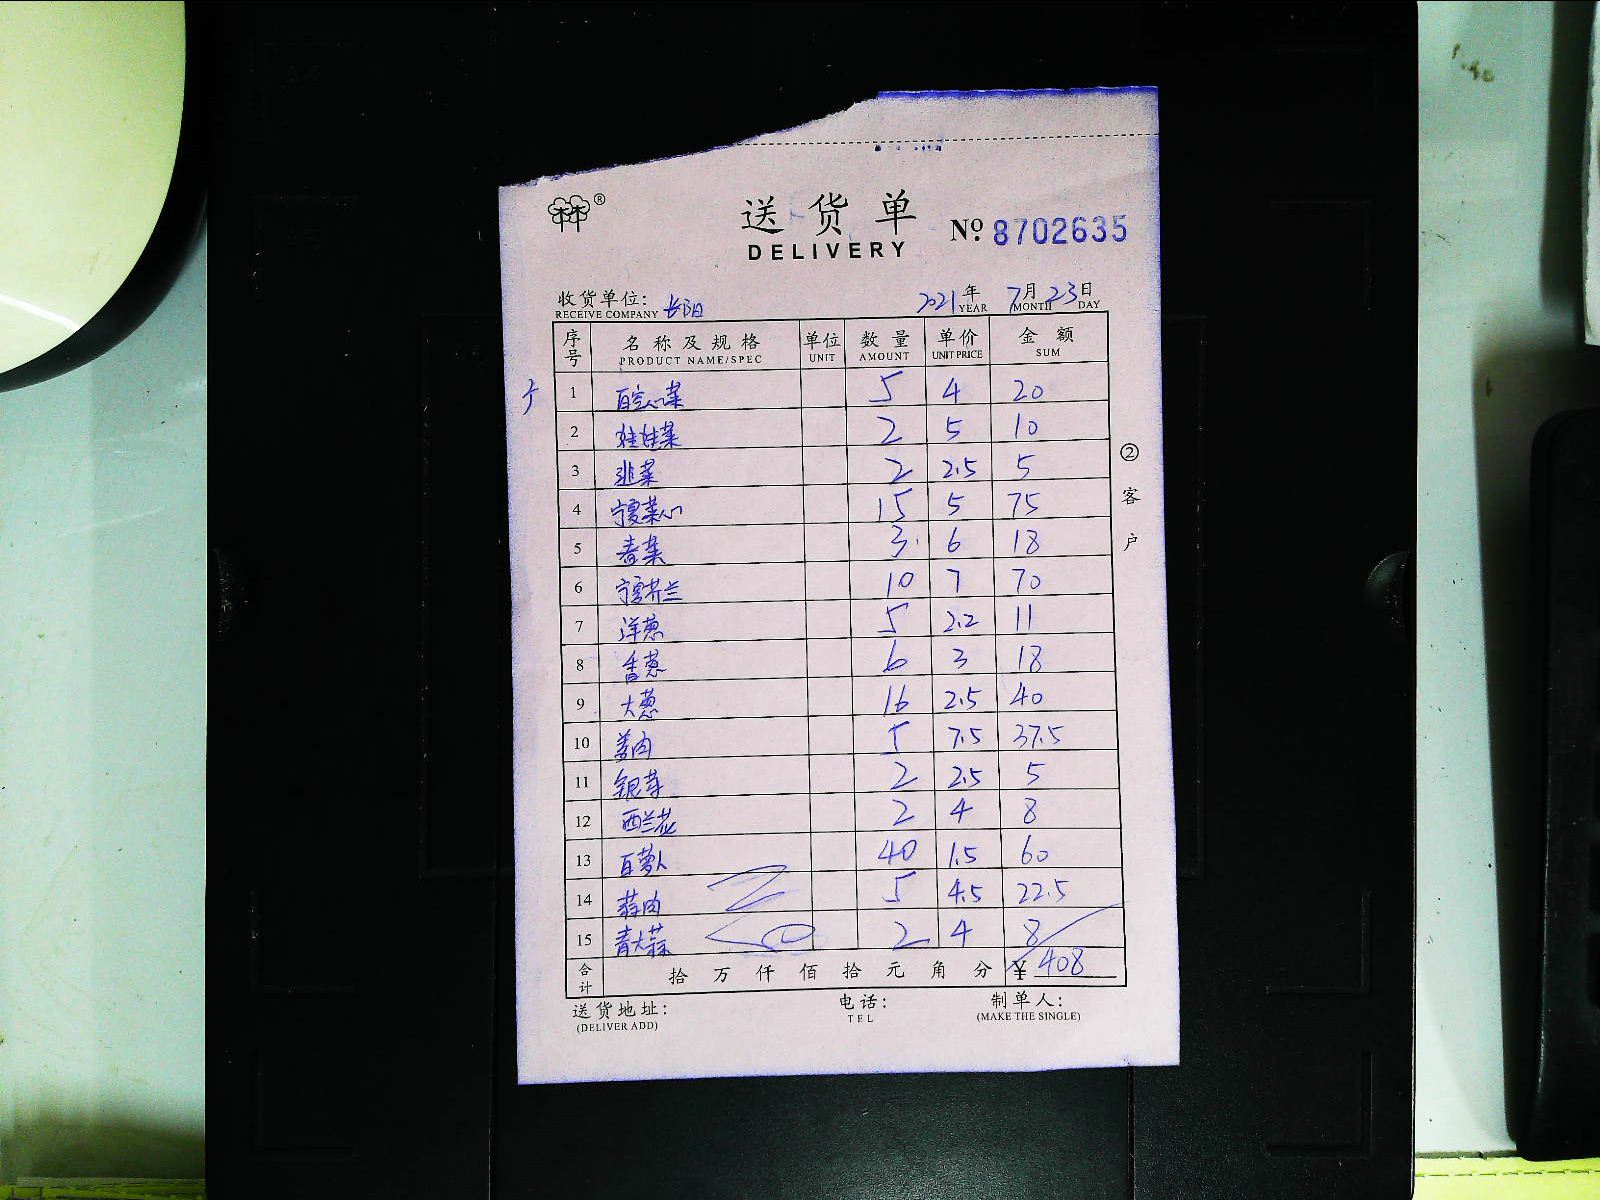 ®
送货单
DELIVERY
№ 8702635
收货单位: 长阳 2021年 7月 23日
RECEIVE COMPANY YEAR MONTH DAY
序号 名称及规格 单位 数量 单价 金额
PRODUCT NAME/SPEC UNIT AMOUNT UNIT PRICE SUM
1 白空心菜 5 4 20
2 娃娃菜 2 5 10
3 韭菜 2 2.5 5
4 宁夏菜心 15 5 75
5 春菜 3 6 18
6 宁夏芥兰 10 7 70
7 洋葱 5 2.2 11
8 香葱 6 3 18
9 大葱 16 2.5 40
10 姜肉 5 7.5 37.5
11 银芽 2 2.5 5
12 西兰花 2 4 8
13 白萝卜 40 1.5 60
14 蒜肉 5 4.5 22.5
15 青大蒜 2 4 8
合计 拾万仟佰拾元角分 ¥408
② 客户
送货地址: 电话: 制单人:
(DELIVER ADD) TEL (MAKE THE SINGLE)